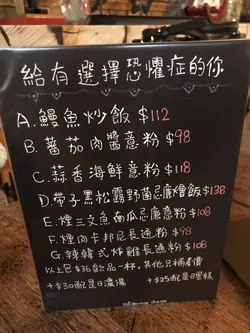 給有選擇恐懼症的你
A.鰻魚炒飯 $112
B.蕃茄肉醬意粉 $98
C.蒜香海鮮意粉 $118
D.帶子黑松露野菌忌廉燴飯 $138
E.煙三文魚南瓜忌廉意粉 $108
F.煙肉卡邦尼長通粉 $98
G.辣韓式炸雞長通粉 $108
以上包$36飲品一杯,其他只補差價
+$30配是日濃湯 +$25配是日蛋糕